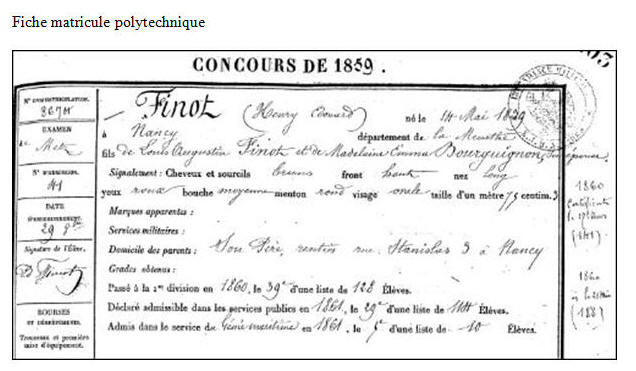 Fiche matricule polytechnique
CONCOURS DE 1859.
N° D'IMMATRICULATION.
EXAMEN
Metz
N° D'ADMISSION.
41
DATE
29 8bre
Signature de l'Élève.
BOURSES
ET DÉGRÈVEMENTS.
Trousseau et première
mise d'équipement.
Finot (Henry Edouard) né le 14 Mai
à Nancy département de la Meurthe
fils de Louis Augustin Finot et de Madelaine Emma Bourguignon,
Signalement : Cheveux et sourcils bruns front haut nez long
yeux roux bouche moyenne menton rond visage ovale taille d'un mètre 75 centim.
Marques apparentes :
Services militaires :
Domicile des parents : Son Père, rentier rue Stanislas 3 à Nancy
Grades obtenus :
Passé à la 1re division en 1860, le 39e d'une liste de 128 Élèves.
Déclaré admissible dans les services publics en 1861, le 29e d'une liste de Élèves.
Admis dans le service du Génie maritime en 1861, le 5e d'une liste de 10 Élèves.
1860